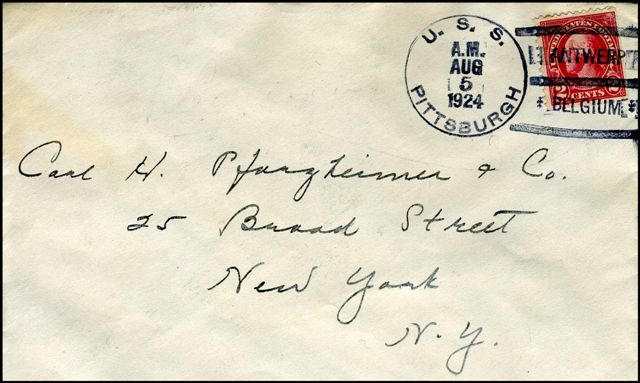 U. S. S.
PITTSBURGH
A.M.
AUG
5
1924
ANTWERP
BELGIUM
2 CENTS
Carl H. Pforzheimer & Co.
25 Broad Street
New York
N. Y.